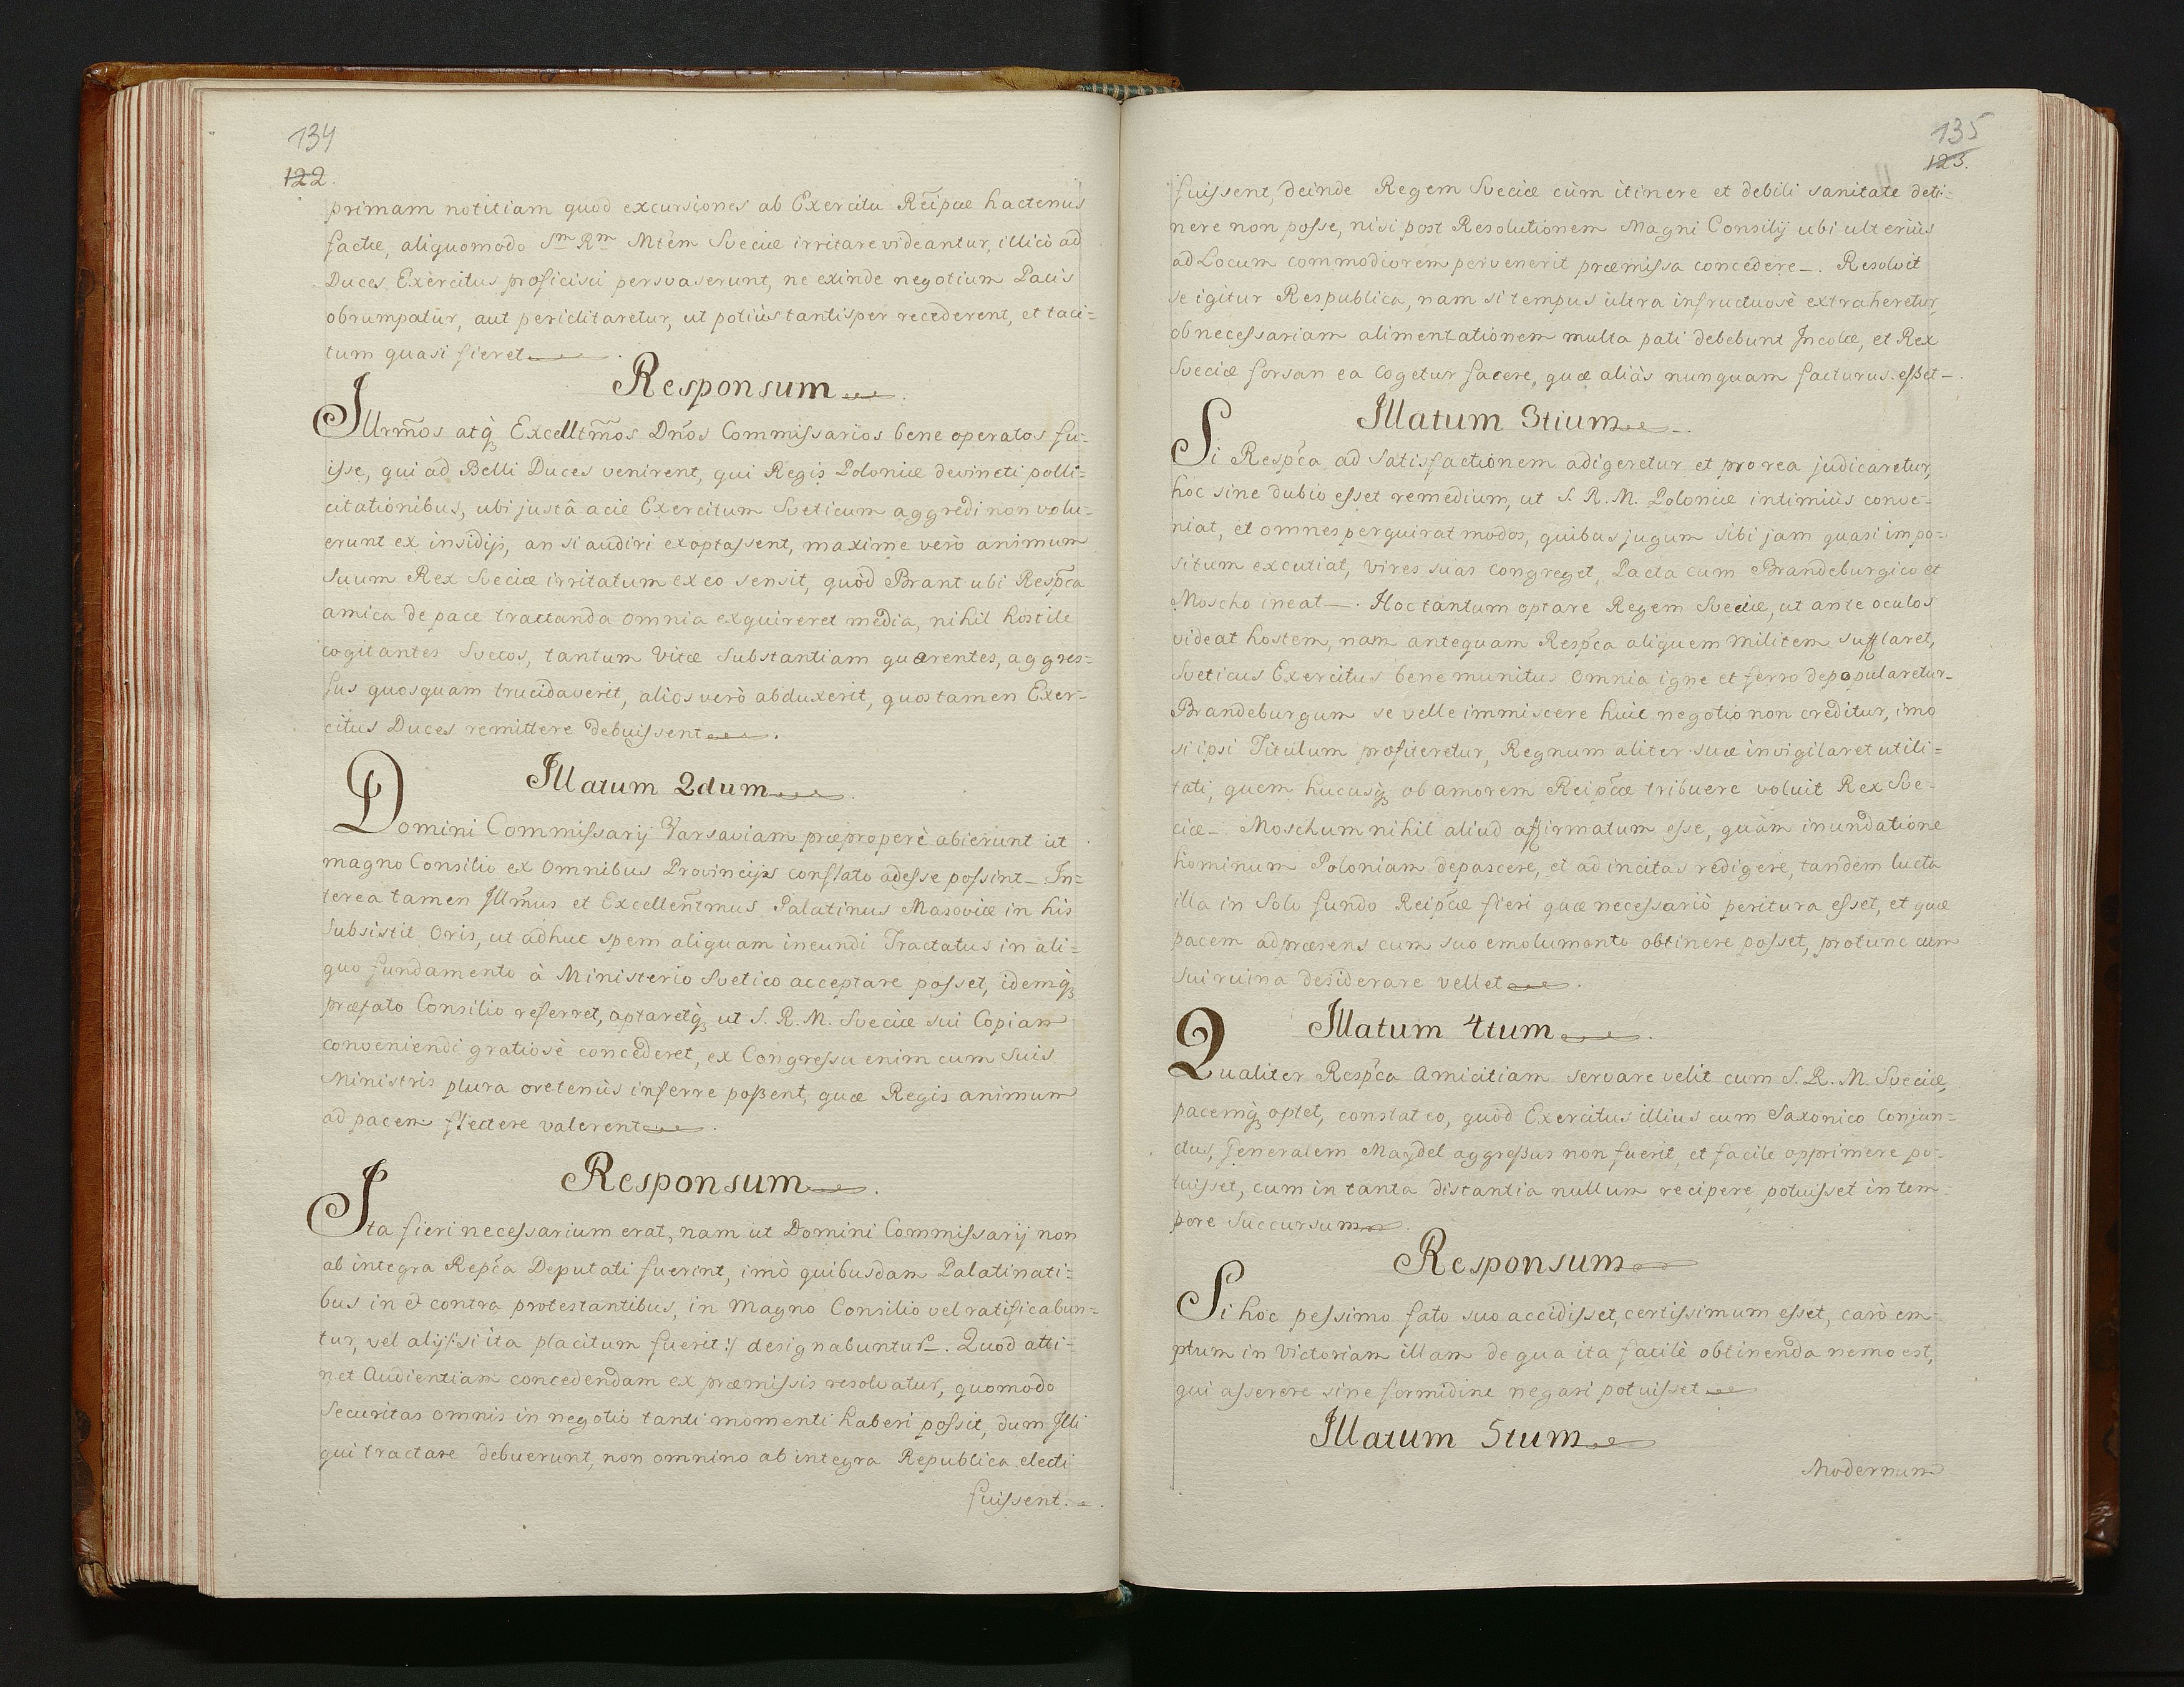 134
122.
primam notitiam quod excursiones ab Exercitu Reipcae hactenus
factae, aliquomodo Sm Rm Mtem Sveciae irritare videantur, illicò ad
Duces Exercitus proficisci persvaserunt, ne exinde negotium Pacis
obrumpatur, aut periclitaretur, ut potiùs tantisper recederent, et taci=
tum quasi fieret.
Responsum.
Illrmos atq3 Excelltmos Dnos Commissarios bene operatos fu=
isse, qui ad Belli Duces venirent, qui Regis Poloniae devincti polli=
citationibus, ubi justâ acie Exercitum Sveticum aggredi non volu=
erunt ex insidijs, an si audiri exoptassent, maxime verò animum
suum Rex Sveciae irritatum ex eo sensit, quòd Brant ubi Respca
amica de pace tractanda omnia exquireret media, nihil hostile
cogitantes Svecos, tantum vitae Substantiam quaerentes, aggres=
sus quosquam trucidaverit, alios verò abduxerit, quos tamen Exer=
citus Duces remittere debuissent.
Illatum 2dum.
Domini Commissarij Varsaviam praeproperè abierunt ut
magno Consilio ex omnibus Provincijs conflato adesse possint_ In=
terea tamen Illmus et Excellentmus Palatinus Masoviae in his
Subsistit Oris, ut adhuc spem aliquam ineundi Tractatus in ali=
quo fundamento à Ministerio Svetico acceptare posset, idemq3
praefato Consilio referret, optaretq3 ut S. R. M. Sveciae sui Copiam
conveniendi gratiosè concederet, ex Congressu enim cum suis
Ministris plura oretenùs inferre possent, quae Regis animum
ad pacem flectere valerent.
Responsum.
Ita fieri necessarium erat, nam ut Domini Commissarij non
ab integra Repca Deputati fuerint, imò quibusdam Palatinati=
bus in et contra protestantibus, in Magno Consilio vel ratificabun=
tur, vel alij /:si ita placitum fuerit:/ designabuntur_. Quod atti=
net Audientiam concedendam ex praemissis resolvatur, quomodo
Securitas omnis in negotio tanti momenti haberi possit, dum Illi
qui tractare debuerunt, non omnino ab integra Republica electi
fuissent.
135
123.
fuissent, deinde Regem Sveciae cùm itinere et debili sanitate deti=
nere non posse, nisi post Resolutionem Magni Consilij ubi ulteriùs
ad Locum commodiorem pervenerit praemissa concedere_. Resolvit
se igitur Respublica, nam si tempus ultra infructuosè extraheretur,
ob necessariam alimentationem multa pati debebunt Incolae, et Rex
Sveciae forsan ea cogetur facere, quae aliàs nunquam facturus esset_.
Illatum 3tium_
Si Respca ad Satisfactionem adigeretur et pro rea judicaretur,
hoc sine dubio esset remedium, ut S. R. M. Poloniae intimiùs conve=
niat, et omnes perquirat modos, quibus jugum sibi jam quasi impo=
situm excutiat, vires suas congreget, Pacta cum Brandeburgico et
Moscho ineat_. Hoc tantum optare Regem Sveciae, ut ante oculos
videat hostem, nam antequam Respca aliquem militem sufflaret,
Sveticus Exercitus bene munitus omnia igne et ferro depopularetur_
Brandeburgum se velle immiscere huic negotio non creditur, imo
si ipsi Titulum profiteretur, Regnum aliter suae invigilaret utili=
tati, quem hucusq3 ob amorem Reipcae tribuere voluit Rex Sve=
ciae_ Moschum nihil aliud affirmatum esse, quàm inundatione
hominum Poloniam depascere, et ad incitas redigere, tandem lucta
illa in Solo fundo Reipcae fieri quae necessariò peritura esset, et quae
pacem ad praesens cum suo emolumento obtinere posset, protunc cum
sui ruina desiderare vellet.
Illatum 4tum.
Qualiter Respca Amicitiam servare velit cum S. R. M. Sveciae,
pacemq3 optet, constat eo, quòd Exercitus illius cum Saxonico Conjun=
ctus, Generalem Maydel aggressus non fuerit, et facile opprimere po=
tuisset, cum in tanta distantia nullum recipere potuisset in tem=
pore Succursum.
Responsum
Si hoc pessimo fato suo accidisset, certissimum esset, carò em=
ptum in Victoriam illam de qua ita facilè obtinenda nemo est,
qui asserere sine formidine negari potuisset
Illatum 5tum
Modernum